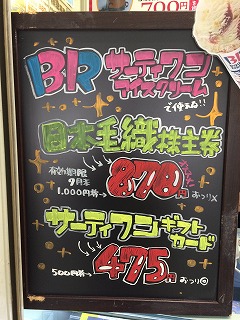 700円
BR サーティワン
アイスクリーム
で使える!!
日本毛織株主券
有効期限
9月末
1,000円券→ 870円 おつり×
サーティワンギフト
カード
500円券→ 475円 おつり◎